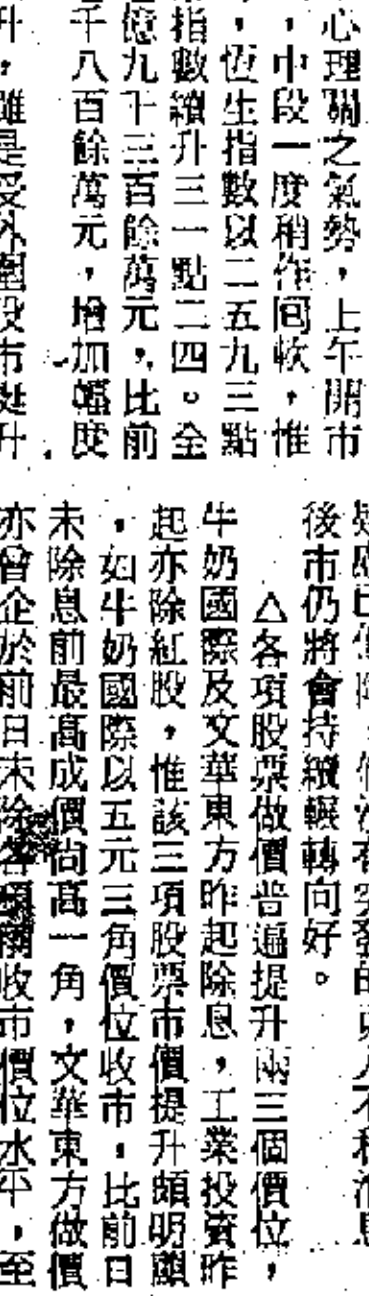 心理關之氣勢，上午開市
，中段一度稍作回軟，惟
，恆生指數以二五九三點
指數續升三一點二四。全
億九千三百餘萬元，比前
千八百餘萬元，增加幅度
升，雖是受外圍股市挺升
後市仍將會持續輾轉向好。
△各項股票做價普遍提升兩三個價位，
牛奶國際及文華東方昨起除息，工業投資昨
起亦除紅股，惟該三項股票市價提升頗明顯
，如牛奶國際以五元三角價位收市，比前日
未除息前最高成價尚高一角，文華東方做價
亦曾企於前日未除收市價位水平，至